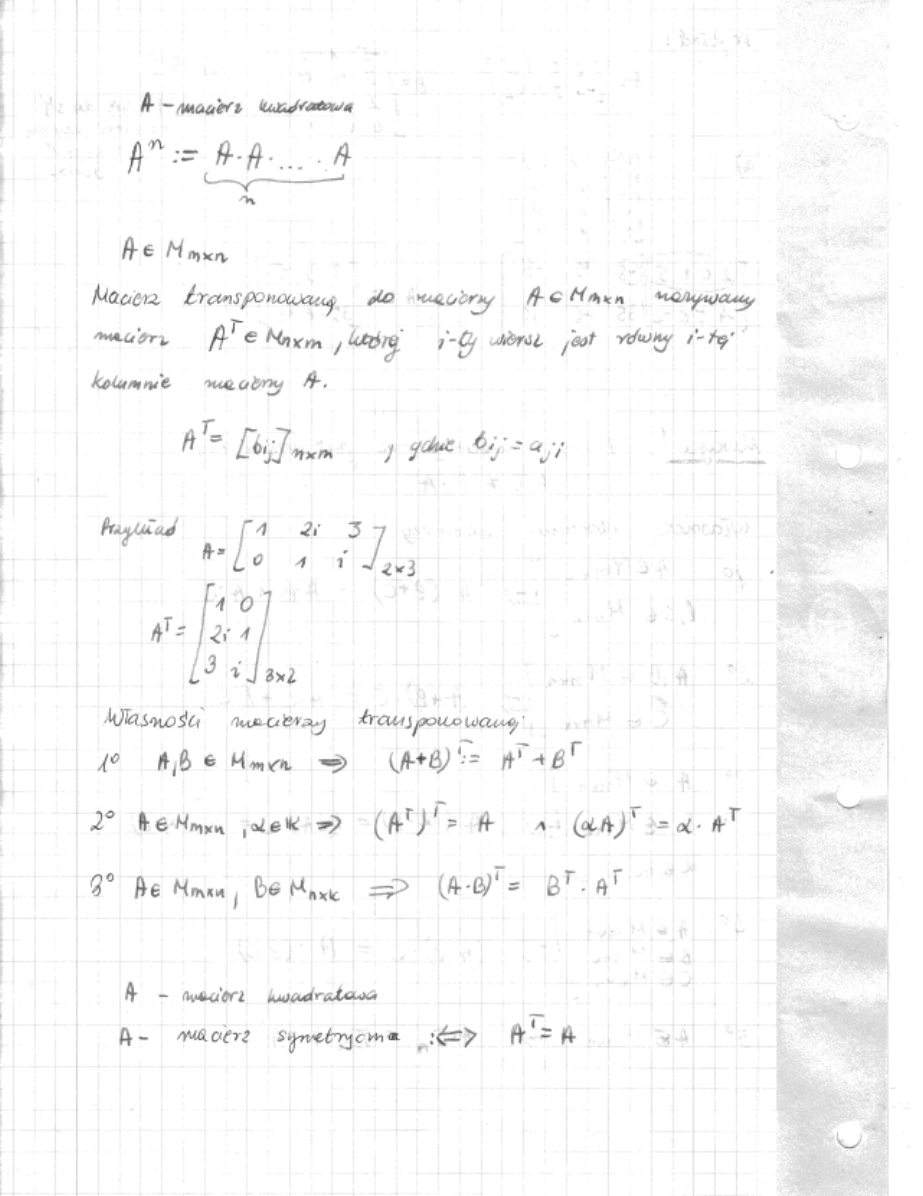 A – macierz kwadratowa
Aⁿ := A·A· ... · A
n
A ∈ M m×n
Macierz transponowaną do macierzy A ∈ M m×n nazywamy
macierz Aᵀ ∈ M n×m, której i-ty wiersz jest równy i-tej
kolumnie macierzy A.
Aᵀ = [bij] n×m , gdzie bij = aji
Przykład A = [1 2i 3
0 1 i] 2×3
Aᵀ = [1 0
2i 1
3 i] 3×2
Własności macierzy transponowanej
1° A,B ∈ M m×n ⇒ (A+B)ᵀ = Aᵀ + Bᵀ
2° A ∈ M m×n, α ∈ K ⇒ (Aᵀ)ᵀ = A ∧ (αA)ᵀ = α · Aᵀ
3° A ∈ M m×n, B ∈ M n×k ⇒ (A·B)ᵀ = Bᵀ · Aᵀ
A – macierz kwadratowa
A – macierz symetryczna :⇔ Aᵀ = A